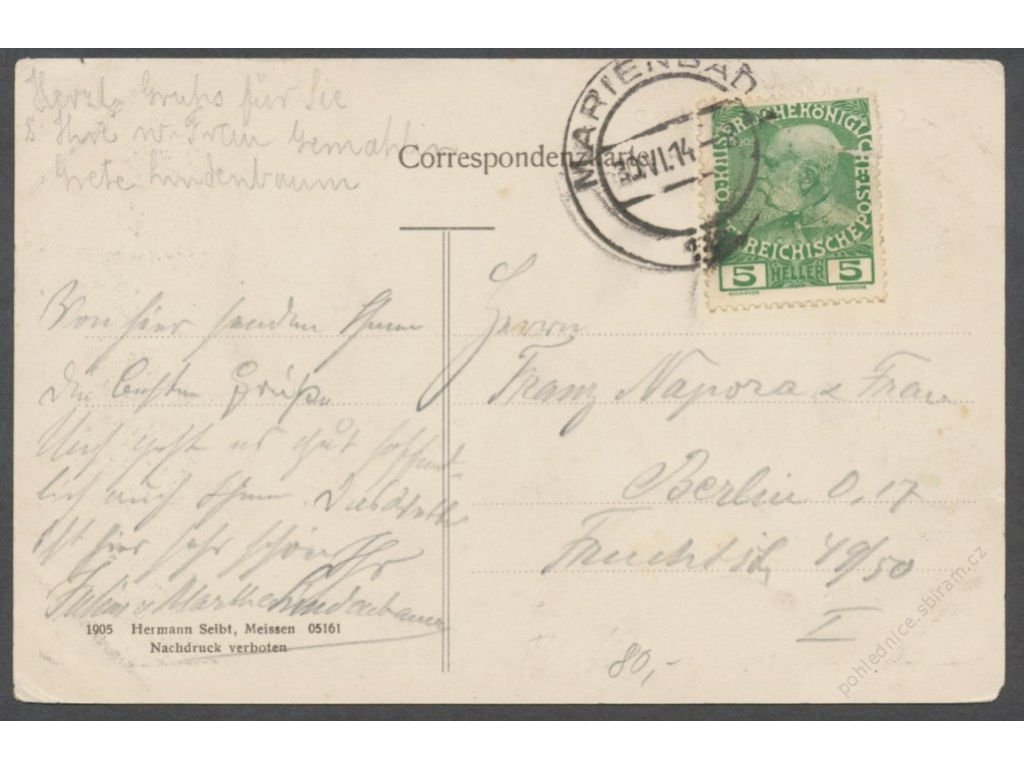 Herzl. Gruss für Sie
& Ihre w. Frau Gemahlin
Grete Lindenbaum
Correspondenzkarte
MARIENBAD
30.VI.14
KAIS. KÖNIGLICHE
ÖSTERREICHISCHE POST
5 HELLER 5
Von hier senden Ihnen
die besten Grüße
Mir geht es gut hoffent-
lich auch Ihnen. Das Wetter
ist hier sehr schön Ihr
Julius u Marthe Lindenbaum
Herrn
Franz Napora & Frau
Berlin O, 17
Fruchtstr. 49/50
I
1905 Hermann Seibt, Meissen 05161
Nachdruck verboten
80,-
pohlednice.sbiram.cz